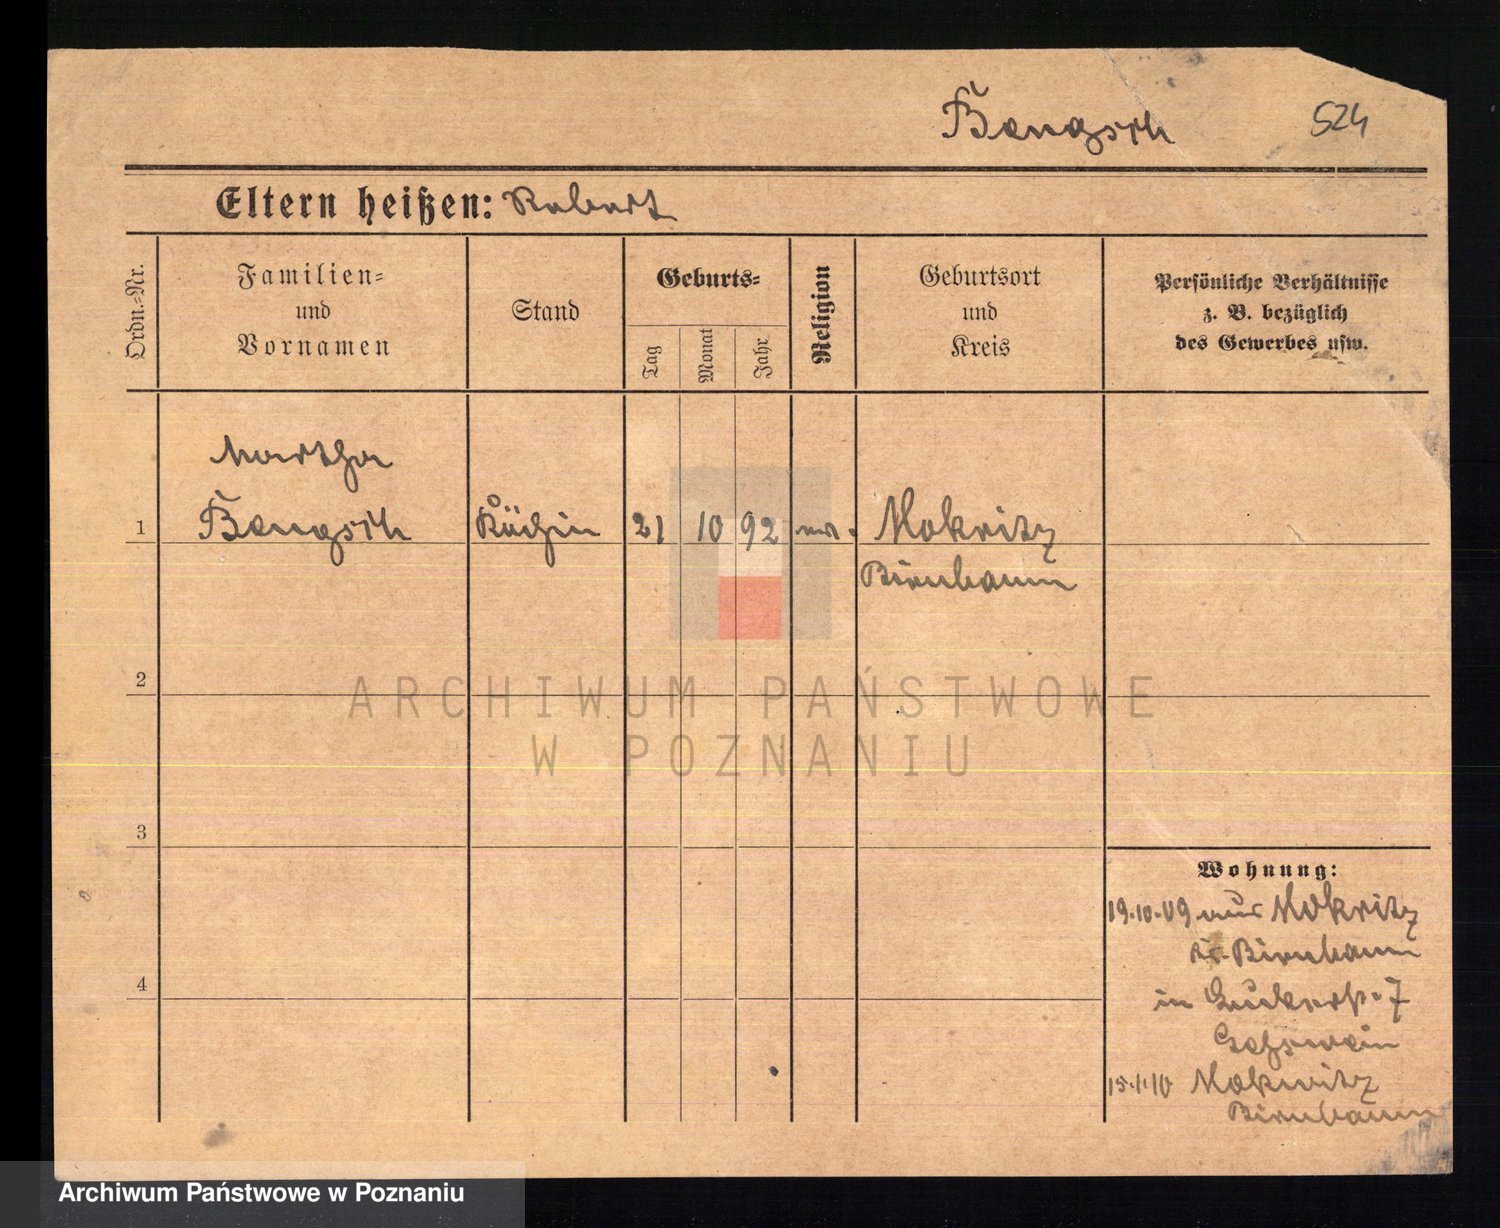 Bengsch 524
Eltern heißen: Robert
Ordn.-Nr.
Familien- und Vornamen
Stand
Geburts-
Tag
Monat
Jahr
Religion
Geburtsort und Kreis
Persönliche Verhältnisse
z. B. bezüglich
des Gewerbes usw.
Martha
1 Bengsch Köchin 21 10 92 Mokritz
Birnbaum
2
ARCHIWUM PAŃSTWOWE
W POZNANIU
3
Wohnung:
19.10.09 aus Mokritz
Kr. Birnbaum
4
in 7
15.1.10 Mokritz
Birnbaum
Archiwum Państwowe w Poznaniu